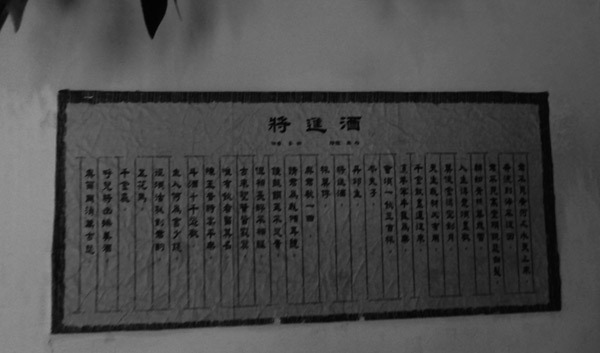 將進酒
君不見黃河之水天上來
奔流到海不復回
君不見高堂明鏡悲白髮
朝如青絲暮成雪
人生得意須盡歡
莫使金樽空對月
天生我材必有用
千金散盡還復來
烹羊宰牛且為樂
會須一飲三百杯
岑夫子
丹邱生
將進酒
杯莫停
與君歌一曲
請君為我傾耳聽
鐘鼓饌玉不足貴
但願長醉不願醒
古來聖賢皆寂寞
唯有飲者留其名
陳王昔時宴平樂
斗酒十千恣歡謔
主人何為言少錢
徑須沽取對君酌
五花馬
千金裘
呼兒將出換美酒
與爾同消萬古愁